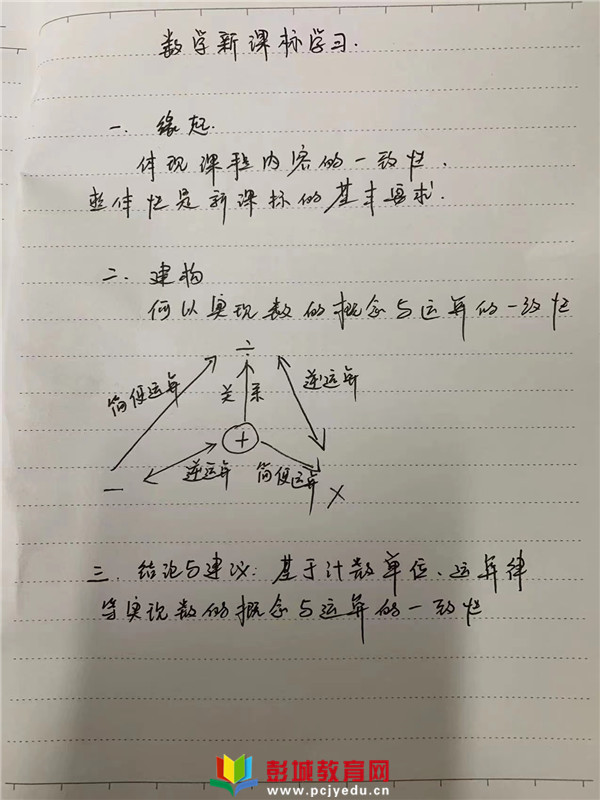 数学新课标学习.
一. 缘起.
体现课程内容的一致性.
整体性是新课标的基本要求.
二. 建构
何以实现数的概念与运算的一致性
÷
简便运算
关系
逆运算
+
－
逆运算
简便运算
×
三. 结论与建议: 基于计数单位、运算律
等实现数的概念与运算的一致性
彭城教育网
www.pcjyedu.cn